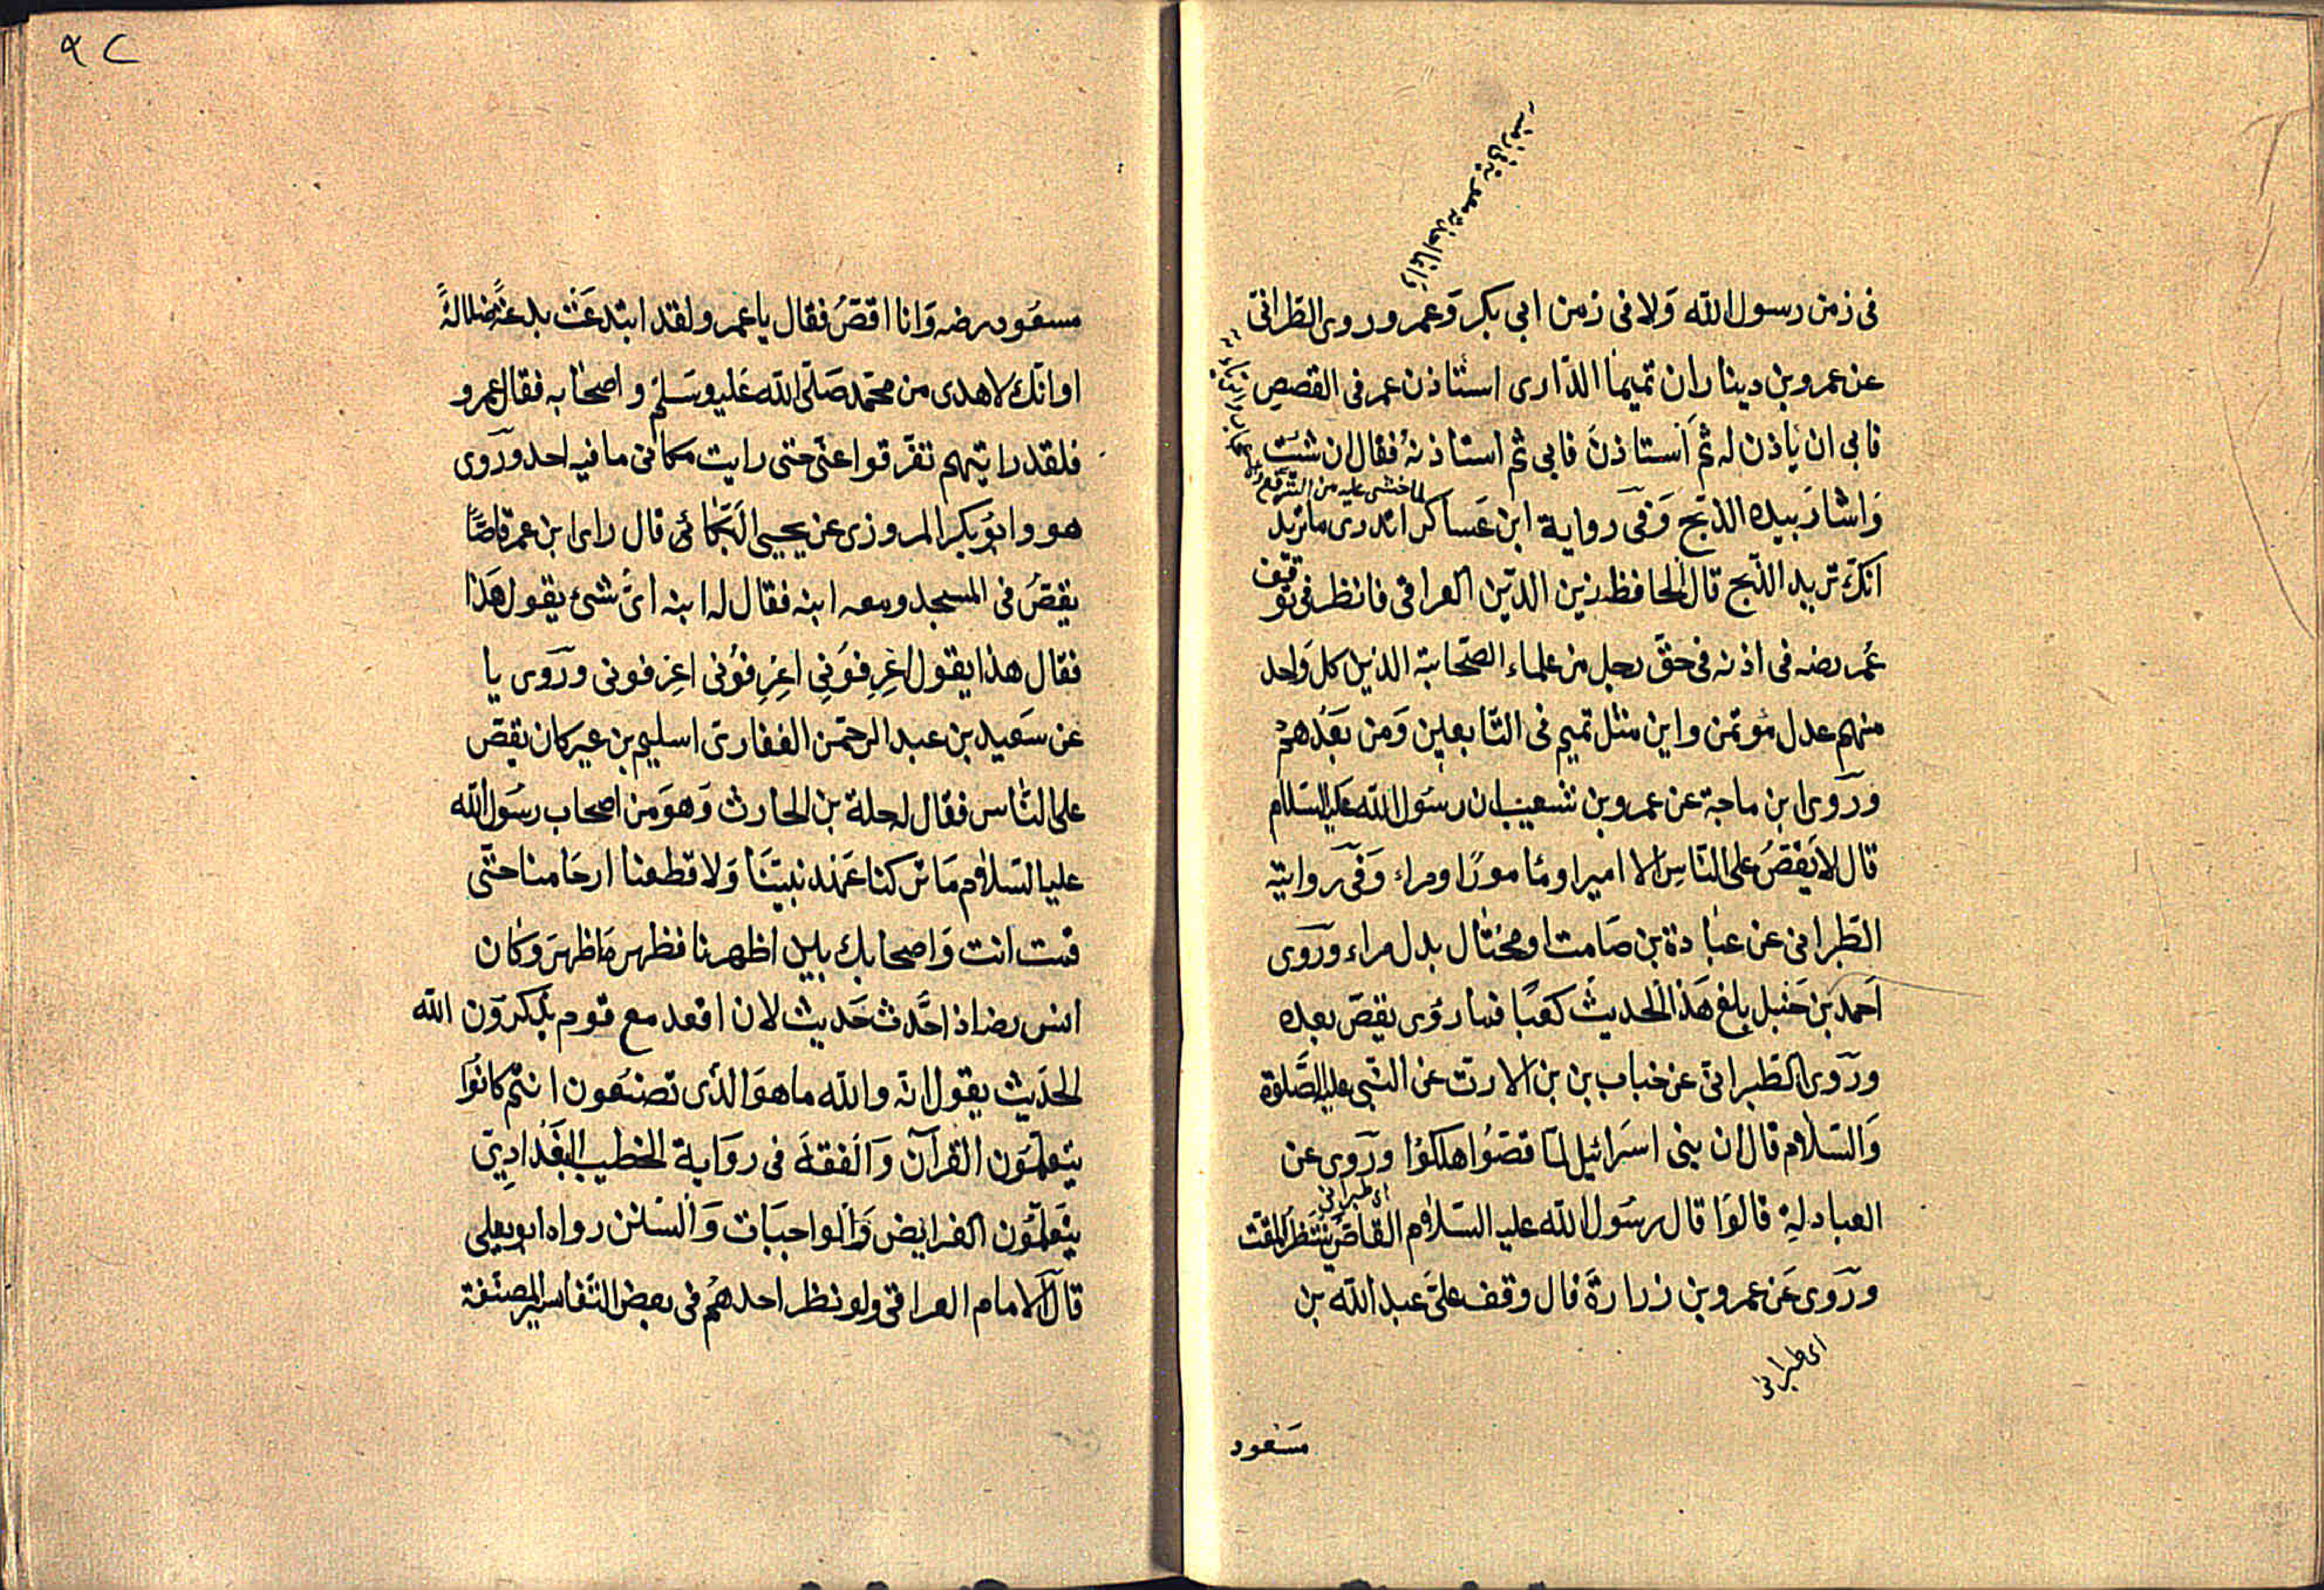 في زمن رسول الله وَلا في زمن ابي بكر وَعمر وروى الطبرانى
عن عمرو بن دينار ان تميما الدّارى استاذن عمر في القصص
فابى ان ياذن له ثم اَستاذنَ فابى ثم استاذنهُ فقال ان شئت
لما خشى عليه من الترفع
وَاشارَ بيده الذبح وَفي رواية ابن عَساكر اتدرى ما تريد
انكّ تريد الذّبح قال الحافظ زين الدّين العراقى فانظر في توقف
عُمر رضه في اذنه في حقّ رجل من علماء الصّحابة الذين كل وَاحد
منهم عدل مؤتمن واين مثل تميم فى التّابعين وَمن بَعْدهمْ
وَروى ابن ماجة عن عمرو بن شعيب ان رسُول الله عليه السّلام
قال لا يَقصُ على النّاسِ الا امير او مَامورًا ومراء وَفي روايته
الطّبرانى عن عبادة بن صَامت او مختال بدل مراء ورَوى
اَحمد بن حَنبل بلغ هَذا الحديثَ كعْبًا فما رؤى يقصّ بعده
ورَوى الطّبرانىّ عن خباب بن بن الارت عن النّبى عليه الصَّلوة
وَالسّلام قال ان بنى اسَرائيل لمّا قصّوُا هلكوُا ورَوى عن
اى طبرانى
العبادلةِ قالوَا قال رسُول الله عليه السّلام القاصُّ ينتظر المقت
ورَوى عَن عمرو بن زرارةَ قال وقف علىَّ عبد الله بن
اى طبرانى
مسَعود
٩٢
مسعُود رضه وَانا اقصّ فقال يا عمرو لقد ابتدعَت بدعةً ضلالةً
او انّك لاهدى من محمّد صَلّى الله عَليه وسَلم و اصحابه فقال عمرو
فلقد رايتهم تفرّقوا عنّى حتى رايت مكانى ما فيه احد ورَوى
هو وابوُ بكر المروزى عن يحيى البَكّائى قال راى ابن عمر قاصًّا
يقصُ فى المسجد ومعه ابنه فقال له ابنه اىُّ شئ يقول هَذا
فقال هذا يقول اعْرِفوُنِى اعْرِفوُنى اعْرِفونى ورَوى يا
عن سَعيد بن عبد الرحمّن الغفارىّ اسليم بن عير كان يقصّ
على النّاس فقال له صلة بن الحارث وَهوَ من اصحاب رسُول الله
عليه السّلام مَا تركنا عَهْد نبيّنَا وَلا قطعنا ارحَامنا حتّى
قمت انت وَاصحابك بين اظهرنا فظهر مَا ظهرَ وكان
انس رضه اذ احَّدث حَديث لان اقعد مع قوم يذكروَن الله
الحدَيث يقول انّه والله ما هوَ الذّى تصنَعون انتم كانوُا
يتعلّموَن القرآن وَالفقهَ فى روَاية الخطيب البغَدادىّ
يتَعلّموُن الفرايض وَالواجبَات وَالسّنن رواه ابو يعلى
قال الامام العراقىّ ولو نظر احدهمُ فى بعض التّفاسير المصنّفة